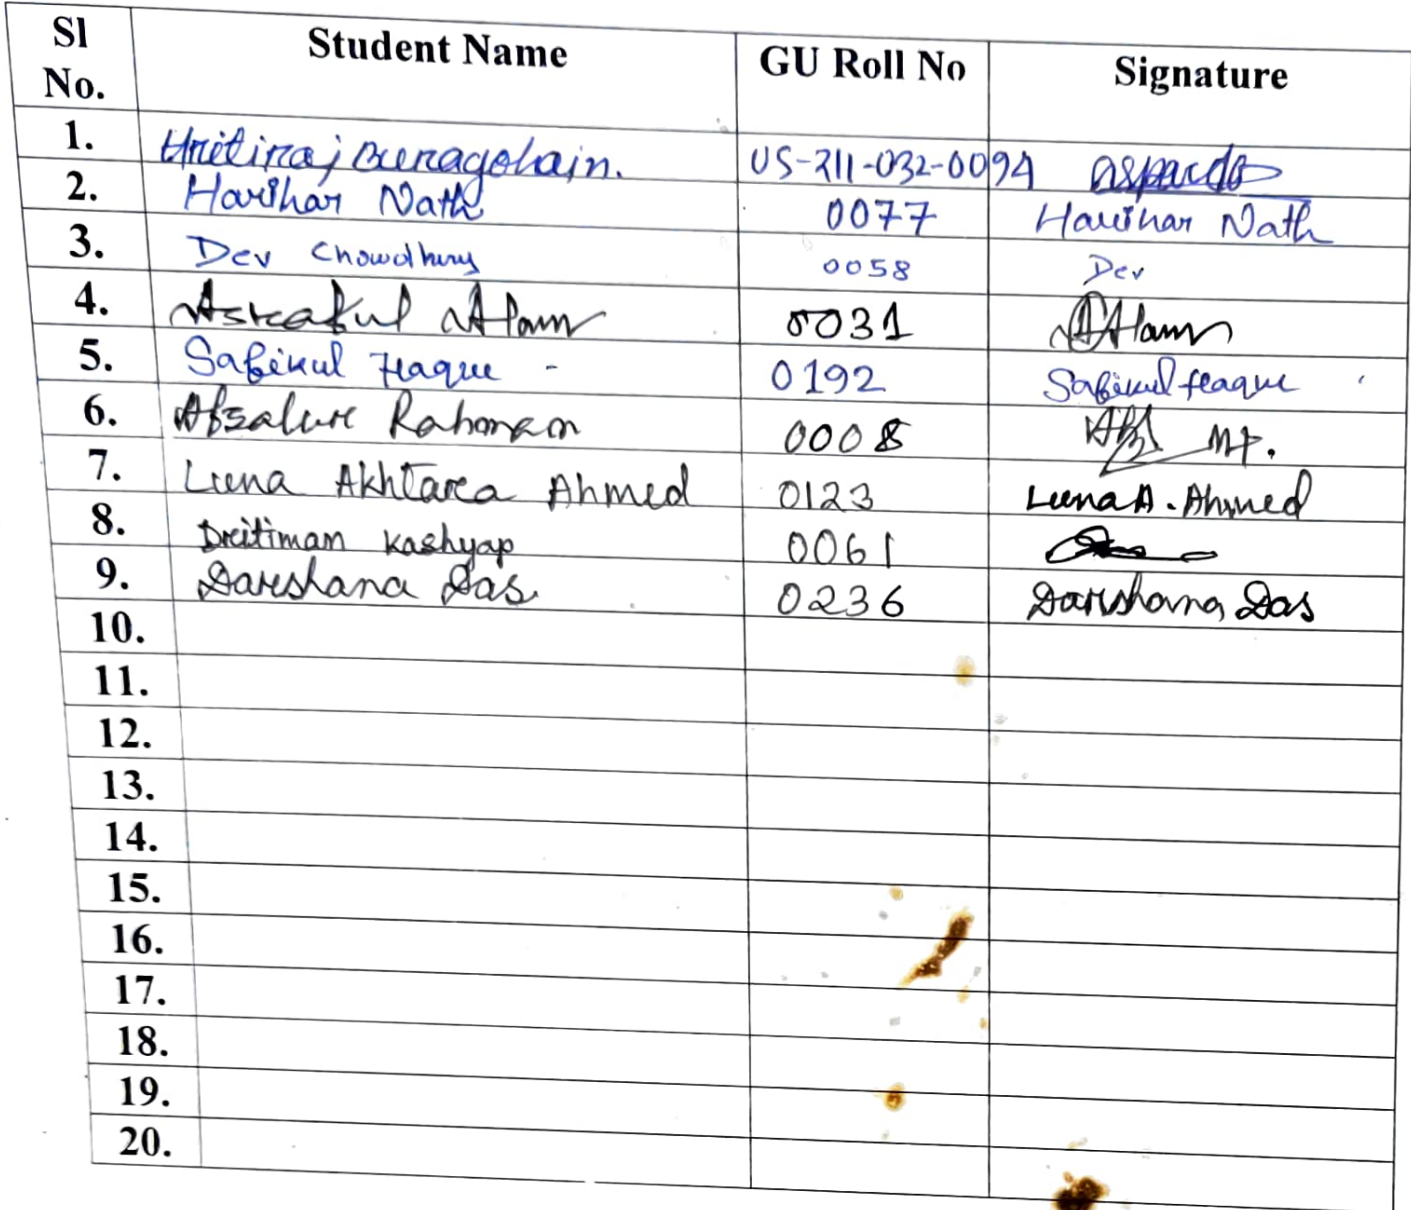 Sl No. Student Name GU Roll No Signature
1. Hritiraj Buragohain. US-211-032-0094
2. Harihar Nath 0077 Harihar Nath
3. Dev Chowdhury 0058 Dev
4. Asraful Alam 0031 AAlam
5. Safikul Haque - 0192 Safikul Haque
6. Afsalur Rahman 0008
7. Luna Akhtara Ahmed 0123 Luna A. Ahmed
8. Dritiman Kashyap 0061
9. Darshana Das. 0236 Darshana Das
10.
11.
12.
13.
14.
15.
16.
17.
18.
19.
20.